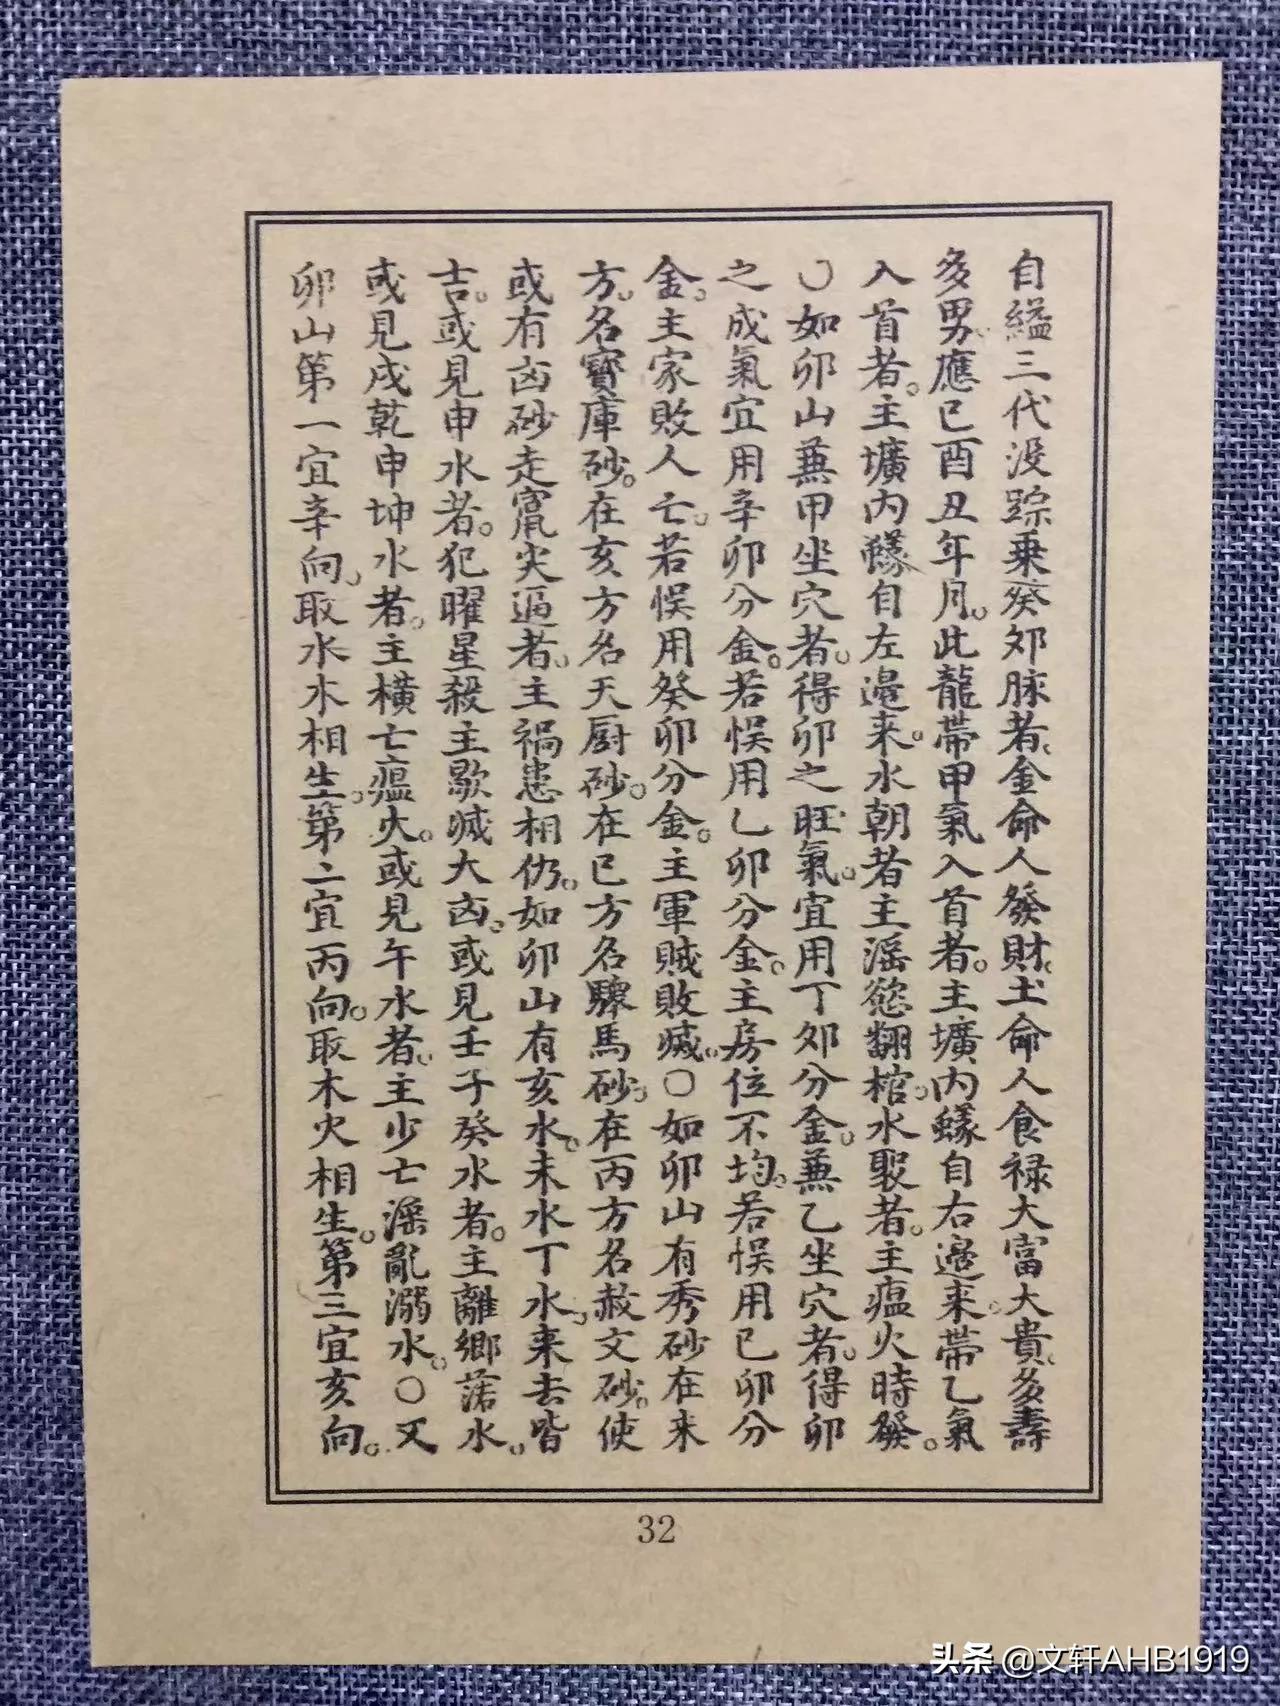 自縊三代没踪乘癸夘脉者金命人發財土命人食禄大富大貴多壽
多男應巳酉丑年月此龍帶甲氣入首者主壙内蟻自右邉来帶乙氣
入首者主壙内蟻自左邉来水朝者主滛慾翻棺水聚者主瘟火時發
〇如卯山兼甲坐穴者得卯之旺氣宜用丁夘分金兼乙坐穴者得卯
之成氣宜用辛卯分金若悮用乙卯分金主房位不均若悮用已卯分
金主家敗人亡若悮用癸卯分金主軍賊敗滅〇如卯山有秀砂在来
方名寶庫砂在亥方名天厨砂在巳方名驟馬砂在丙方名赦文砂使
或有凶砂走竄尖逼者主禍患相仍如卯山有亥水未水丁水来去皆
吉或見申水者犯曜星殺主歇滅大凶或見壬子癸水者主離鄉落水
或見戌乾申坤水者主橫亡瘟火或見午水者主少亡滛亂溺水〇又
卯山第一宜辛向取水木相生第二宜丙向取木火相生第三宜亥向
32
头条 @文轩AHB1919